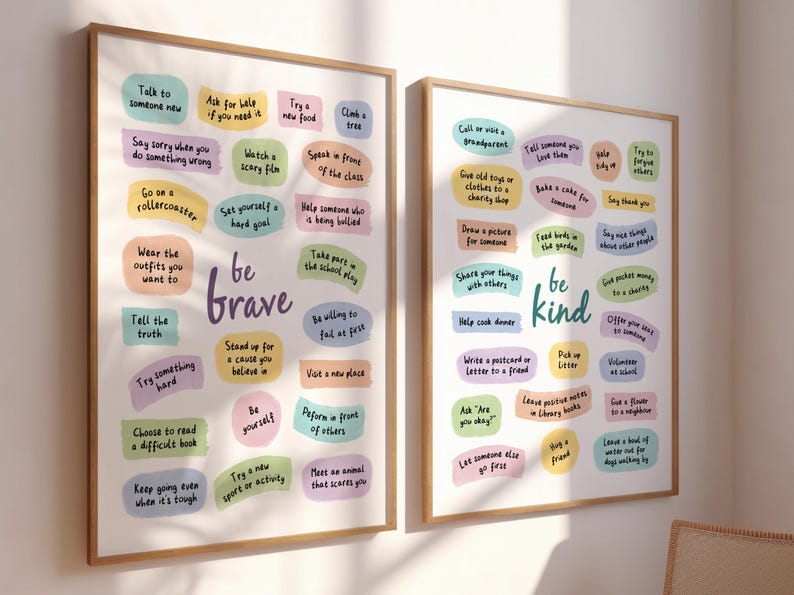 Talk to
someone new
Ask for help
if you need it
Try a
new food
Climb a
tree
Say sorry when you
do something wrong
Watch a
scary film
Speak in front
of the class
Go on a
rollercoaster
Set yourself a
hard goal
Help someone who
is being bullied
Wear the
outfits you
want to
be
brave
Take part in
the school play
Tell the
truth
Be willing to
fail at first
Stand up for
a cause you
believe in
Try something
hard
Visit a new place
Choose to read
a difficult book
Be
yourself
Peform in front
of others
Keep going even
when it's tough
Try a new
sport or activity
Meet an animal
that scares you
Call or visit a
grandparent
Tell someone you
love them
Help
tidy up
Try to
forgive
others
Give old toys or
clothes to a
charity shop
Bake a cake for
someone
Say thank you
Draw a picture
for someone
Feed birds in
the garden
Say nice things
about other people
Share your things
with others
be
kind
Give pocket money
to a charity
Help cook dinner
Offer your seat
to someone
Write a postcard or
letter to a friend
Pick up
litter
Volunteer
at school
Ask "Are
you okay?"
Leave positive notes
in library books
Give a flower
to a neighbour
Let someone else
go first
Hug a
friend
Leave a bowl of
water out for
dogs walking by